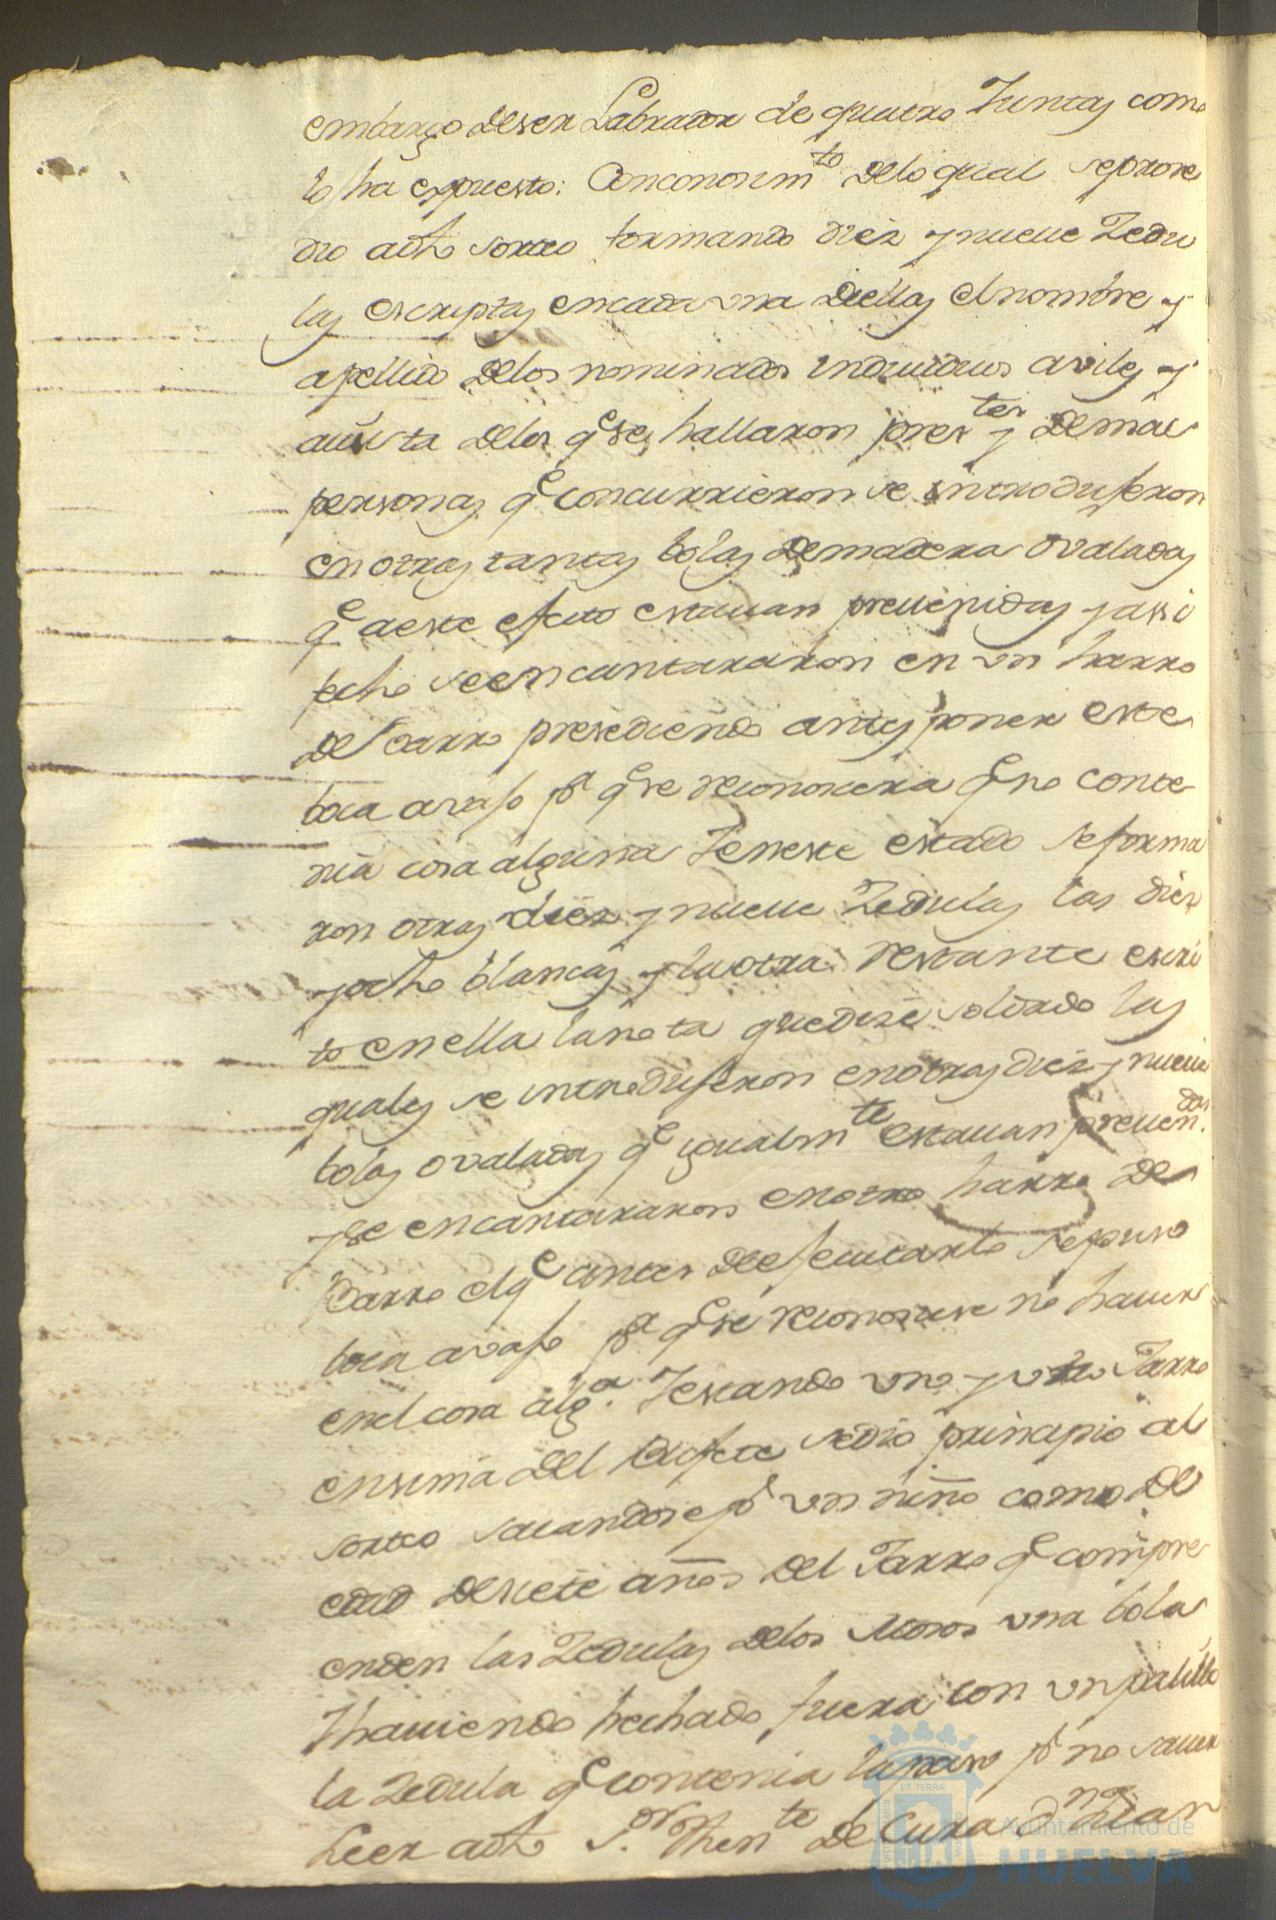 embargo deser Labrador de quatro Juntas como
lo ha expuesto: Con conosim.to delo qual seproce
dio adho sorteo formando diez y nueue Zedu
las escriptas encada vna deellas el nombre y
apellido delos nominados induiduos aviles y
auista delos q.e se hallaron pres.tes y demas
personas q.e concurrieron se introdujeron
en otras tantas bolas demadera ovaladas
q.e aeste efecto estauan preuenidas y assi
fecho se encantararon en vn harro
de barro presediendo antes poner este
boca avajo p.a q.e se reconociera q.e no conte
nia cosa alguna Y eneste estado seforma
ron otras diez y nueue Zedulas las diez
y ocho blancas y la otra restante escri
to enella lanota quedize soldado las
quales se introdujeron enotras diez y nueue
bolas ovaladas q.e igualm.te estauan preuen.das
y se encantararon enotro harro de
barro el q.e antes de efecutarlo sepuso
boca avajo p.a q.e se reconosiese no hauer
enel cosa alg.a Y estando vno y otro Jarro
ensima del bufete sedio principio al
sorteo sacandose p.r vn niño como de
edad desiete años del Jarro q.e compre
enden las Zedulas delos Mosos vna bola
Y hauiendo hechado fuera con vn palillo
la Zedula q.e contenia la paso p.r no sauer
leer adho S.or Then.te de Cura d.n
Ayuntamiento de
HUELVA